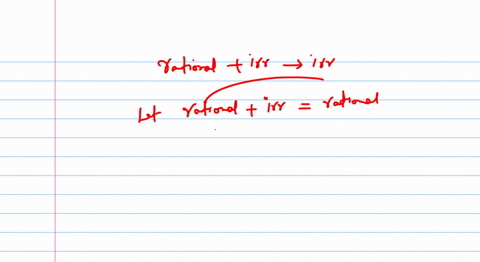 rational + irr → irr
Let rational + irr = rational